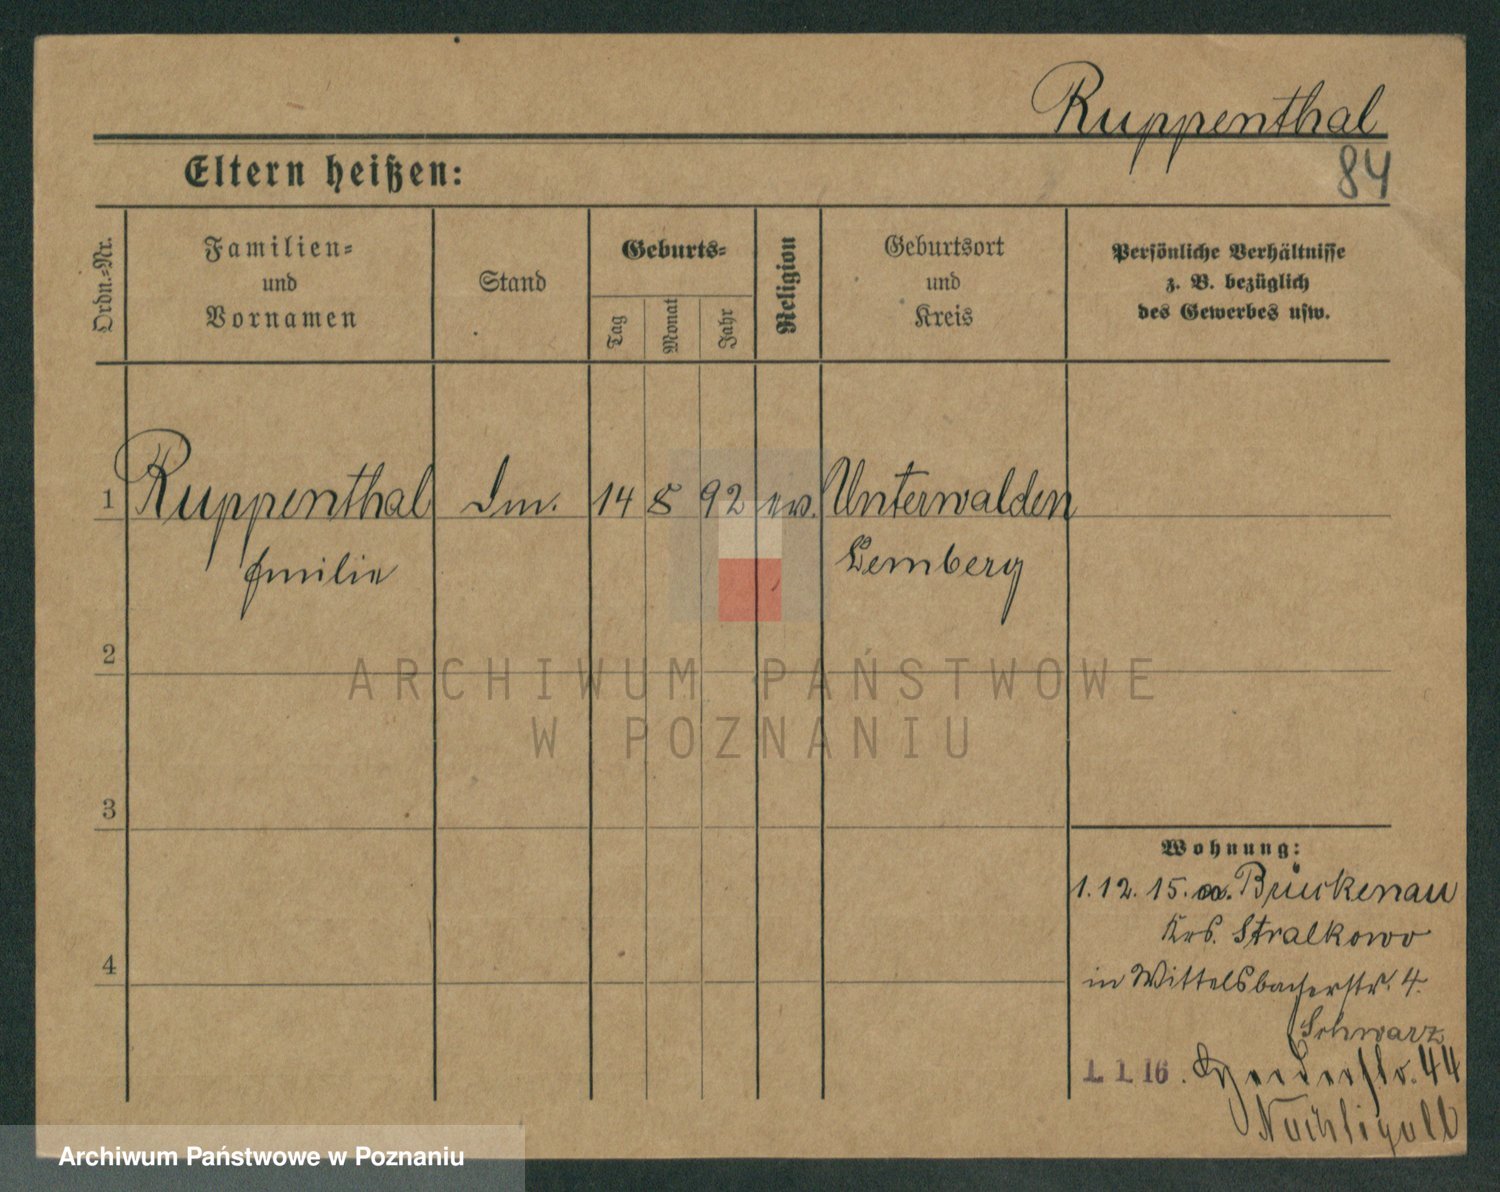 Ruppenthal
84
Eltern heißen:
Ordn.=Nr.
Familien=
und
Vornamen
Stand
Geburts=
Tag
Monat
Jahr
Religion
Geburtsort
und
Kreis
Persönliche Verhältnisse
z. B. bezüglich
des Gewerbes usw.
1 Ruppenthal Dm. 14 8 92 ev. Unterwalden
Emilie Lemberg
2
ARCHIWUM PAŃSTWOWE
W POZNANIU
3
Wohnung:
1. 12. 15. a. Brückenau
Krs. Stralkowo
4
in Wittelsbacherstr. 4.
Schwarz
1. 1. 16. 44
Nachtigall
Archiwum Państwowe w Poznaniu